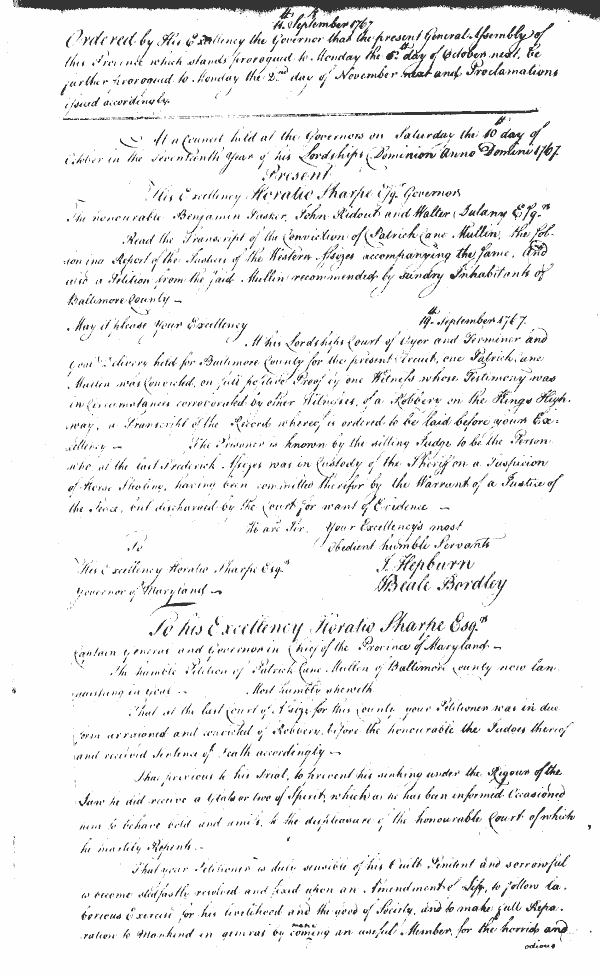 14th September 1767
Ordered by His Excellency the Governor that the present General Assembly of
this Province which stands prorogued to Monday the 5th day of October next, be
further prorogued to Monday the 2nd day of November next and Proclamations
issued accordingly.
At a Council held at the Governors on Saturday the 10th day of
October in the seventeenth Year of his Lordships Dominion Anno Domini 1767.
Present
His Excellency Horatio Sharpe Esqr. Governor
The honourable Benjamin Tasker, John Ridout and Walter Dulany Esqrs
Read the Transcript of the Conviction of Patrick Cane Mullen, the fol-
lowing Report of the Justices of the Western Assizes accompanying the same, And
also a Petition from the said Mullen recommended by sundry Inhabitants of
Baltimore County —
May it please Your Excellency
19th September 1767.
At his Lordships Court of Oyer and Terminer and
Goal Delivery held for Baltimore County for the present Circuit, one Patrick Cane
Mullen was Convicted, on full positive Proof by one Witness whose Testimony was
in Circumstances corroborated by other Witnesses, of a Robbery on the Kings High-
way, a Transcript of the Record whereof is ordered to be laid before your Ex-
cellency — The Prisoner is known by the sitting Judge to be the Person
who, at the last Frederick Assizes was in Custody of the Sheriff on a Suspicion
of Horse Stealing, having been committed therefor by the Warrant of a Justice of
the Peace, but discharged by the Court for want of Evidence —
We are Sir, Your Excellency's most
To obedient humble Servants
His Excellency Horatio Sharpe Esqr. J. Hepburn
Governor of Maryland — Beale Bordley
To his Excellency Horatio Sharpe Esqr.
Captain General and Governor in Chief of the Province of Maryland —
The humble Petition of Patrick Cane Mullen of Baltimore County now lan-
guishing in Goal — Most humbly sheweth
That at the last Court of Assize for this County your Petitioner was in due
form arraigned and convicted of Robbery, before the honourable the Judges thereof
and received Sentence of Death accordingly —
That previous to his Trial, to prevent his sinking under the Rigour of the
Law he did receive a Glass or two of Spirit, which as he has been informed Occasioned
him to behave bold and to the displeasure of the honourable Court of which
he heartily Repents —
That your Petitioner is duly sensible of his Guilt Penitent and sorrowful
is become stedfastly resolved and fixed upon an Amendment of Life, to follow la-
borious Exercise for his livelihood and the good of Society, and to make full Repa-
ration to Mankind in general by coming an useful Member, for the horrid and
odious